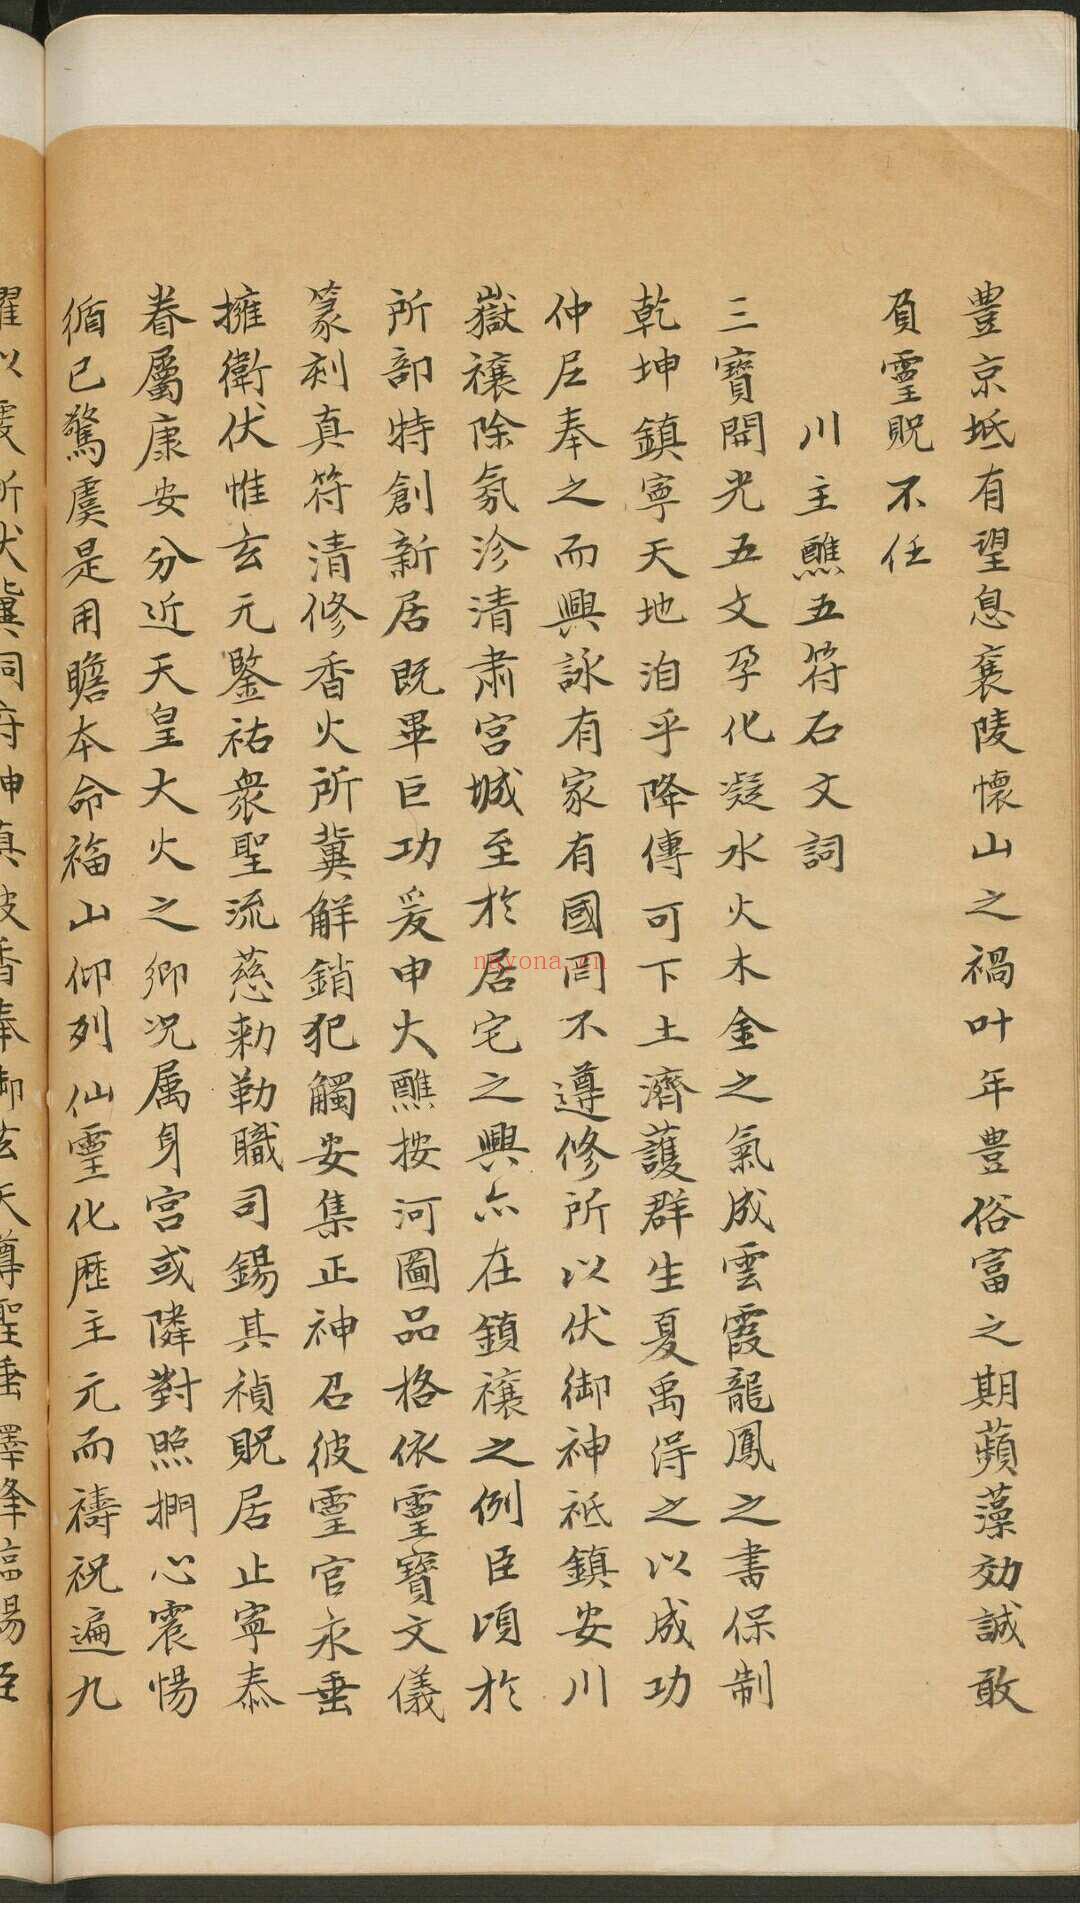 豊京坻有望息褱陵懷山之禍叶年豊俗富之期蘋藻効誠敢
負靈貺不任
川主醮五符石文詞
三寶開光五文孕化凝水火木金之氣成雲霞龍鳳之書保制
乾坤鎮寧天地洎乎降傳可下土濟護群生夏禹淂之以成功
仲尼奉之而興詠有家有國罔不遵修所以伏御神祇鎮安川
嶽禳除氛沴清肅宮城至於居宅之興亦在鎮禳之例臣頃於
所部特創新居既畢巨功爰申大醮按河圖品格依靈寶文儀
篆刻真符清修香火所冀解銷犯觸安集正神召彼靈官永垂
擁衛伏惟玄元鑒祐衆聖流慈勑勒職司錫其禎貺居止寧泰
眷屬康安分近天皇大火之卿况属身宮或隣對照捫心震惕
循已驚虞是用瞻本命福山仰列仙靈化歷主元而禱祝遍九